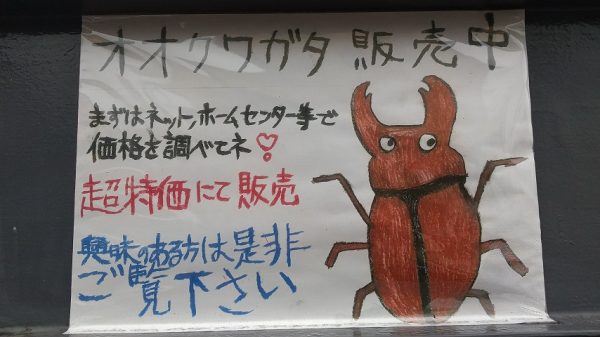 オオクワガタ 販売中
まずはネット,ホームセンター等で
価格を調べてネ♡
超特価にて販売
興味のある方は是非
ご覧下さい